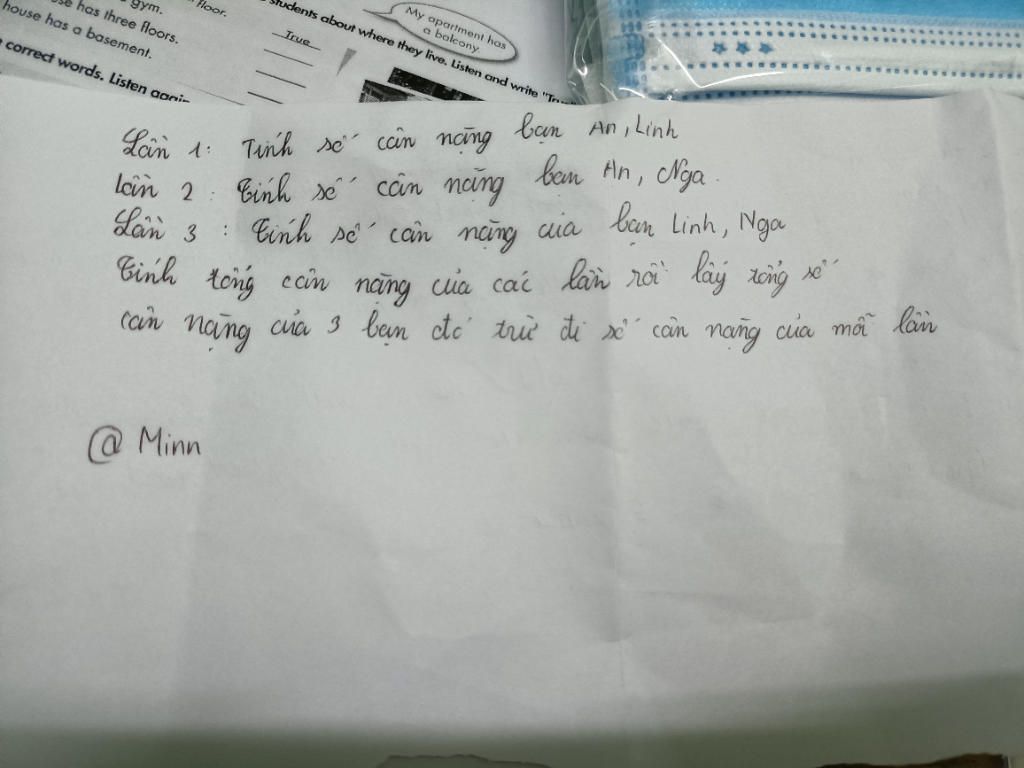 gym.
floor.
se has three floors.
house has a basement.
correct words. Listen again
students about where they live. Listen and write "Tru
True
My apartment has
a balcony.
Lần 1: Tính số cân nặng bạn An, Linh
Lần 2: Tính số cân nặng bạn An, Nga.
Lần 3: Tính số cân nặng của bạn Linh, Nga
Tính tổng cân nặng của các lần rồi lấy tổng số
cân nặng của 3 bạn đó trừ đi số cân nặng của mỗi lần
@ Minn